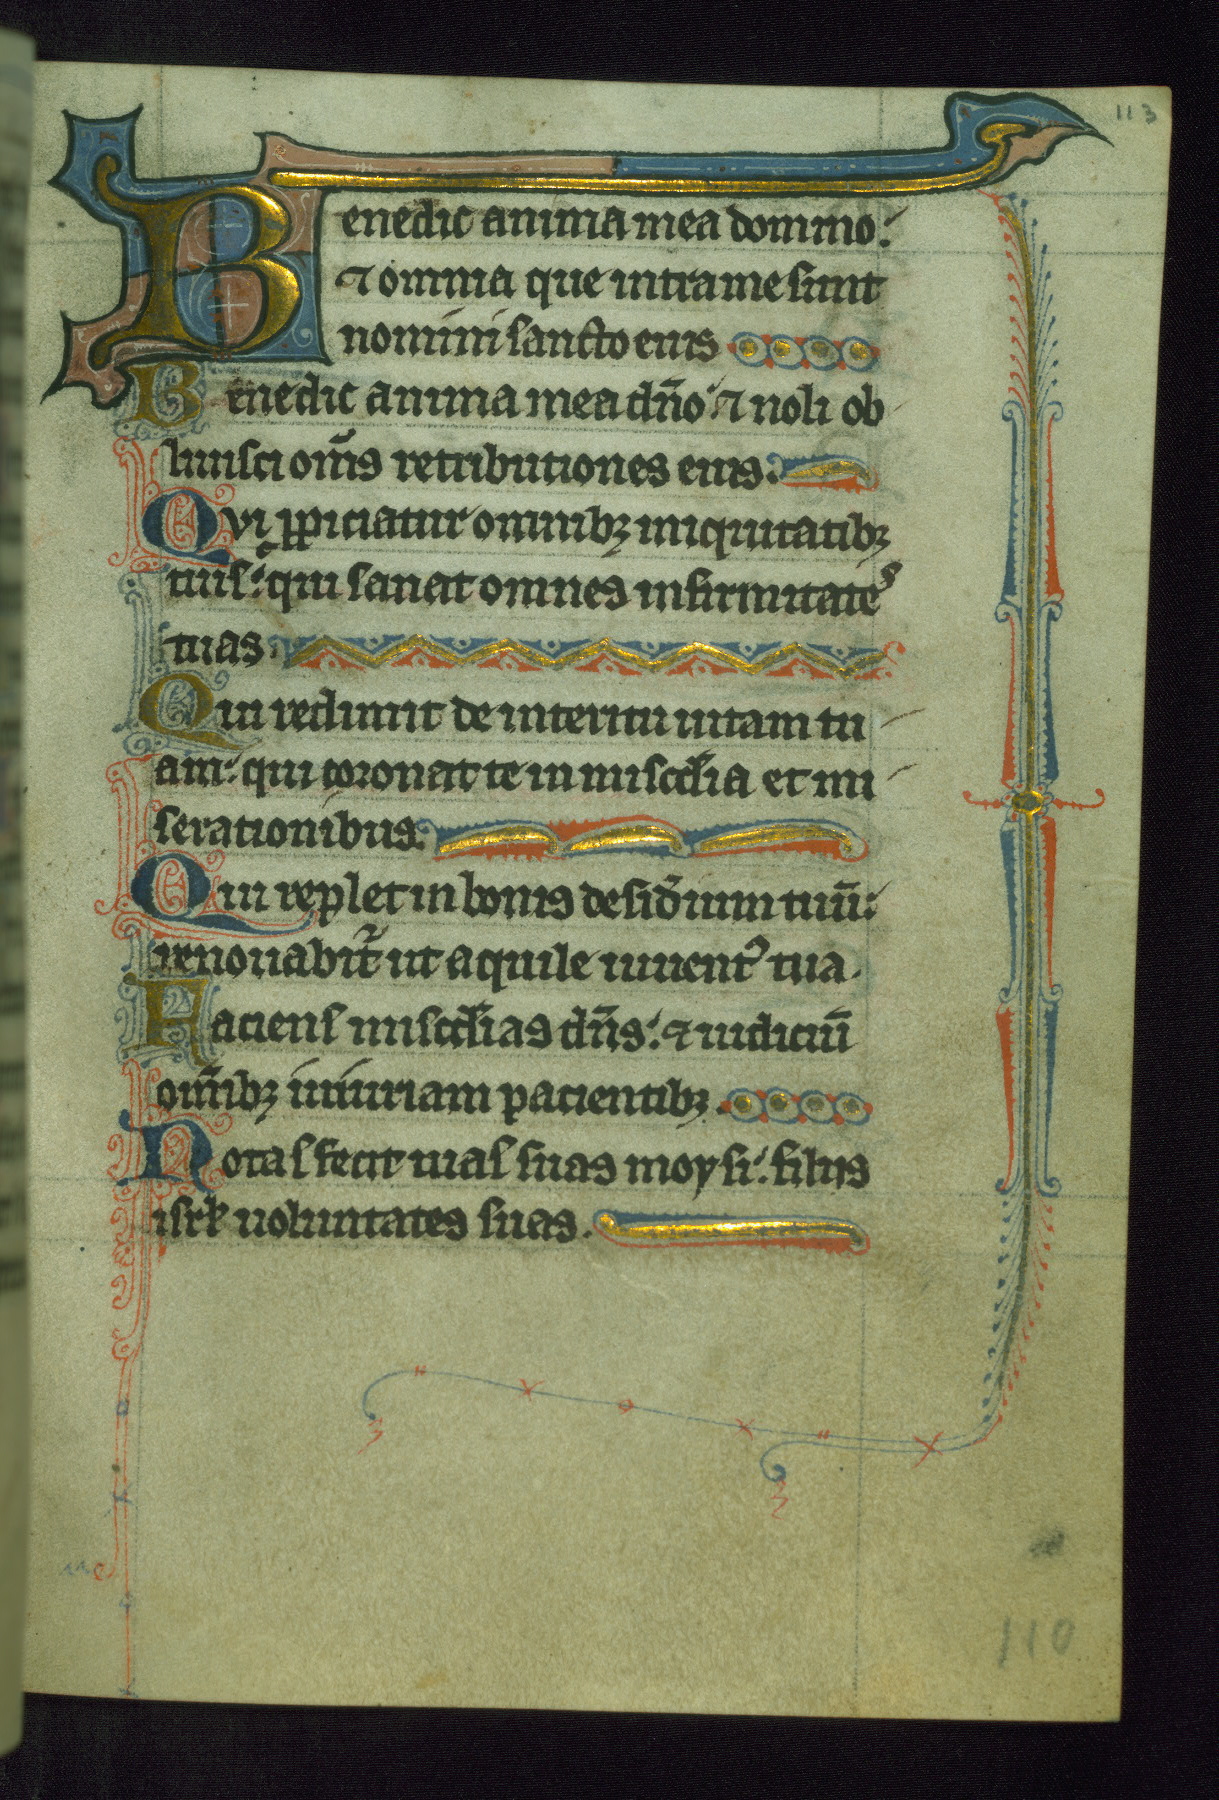 113
Benedic anima mea domino:
⁊ omnia que intra me sunt
nomini sancto eius
Benedic anima mea dn̄o: ⁊ noli ob
liuisci om̄is retributiones eius:
Qvi ꝓpiciatur omnibꝫ iniquitatibꝫ
tuis: qui sanat omnes infirmitates
tuas
Qui redimit de interitu uitam tu
am: qui coronat te in misc̄dia et mi
serationibus.
Qui replet in bonis desid̄ium tuū:
renouabit᷑ ut aquile iuuentꝰ tua.
Faciens misc̄dias dn̄s: ⁊ iudiciū
om̄ibꝫ iniuriam pacientibꝫ.
Notas fecit uias suas moysi: filiis
isrł uoluntates suas.
110